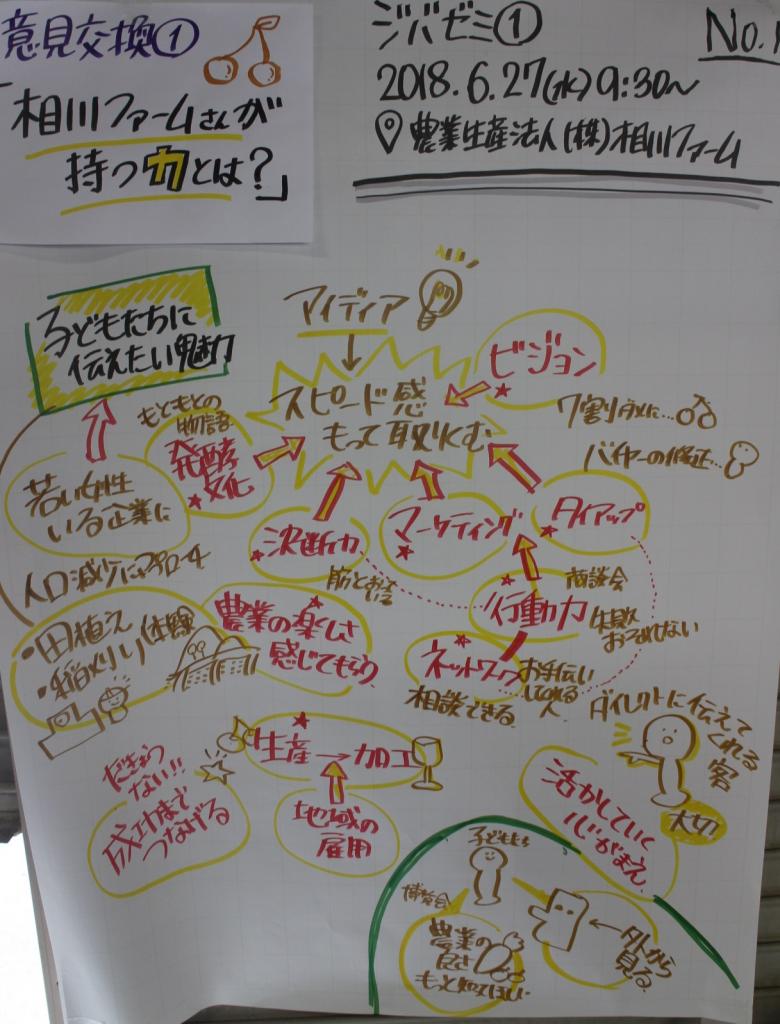 意見交換①
「相川ファームさんが
持つ力とは？」
ジバゼミ①
No.1
2018.6.27(水)9:30〜
農業生産法人(株)相川ファーム
子どもたちに
伝えたい魅力
アイディア
スピード感
もって取りくむ
ビジョン
7割ダメに…
バイヤーの修正…
もともとの
物語
発酵
文化
若い女性
いる企業に
人口減少にアプローチ
決断力
筋とおって
いる
マーケティング
タイアップ
商談会
行動力
失敗
おそれない
ネットワーク
お手伝い
してくれる
人
相談できる
・田植え
・稲刈り体験
農業の楽しさ
感じてもらう
ダイレクトに伝えて
くれる
客
大切
生産→加工
地域の
雇用
だきょう
ない!!
成功まで
つなげる
活かしていく
心がまえ
子どもたち
博覧会
農業の
良さ
もっと知ってほしい
←外から
見る